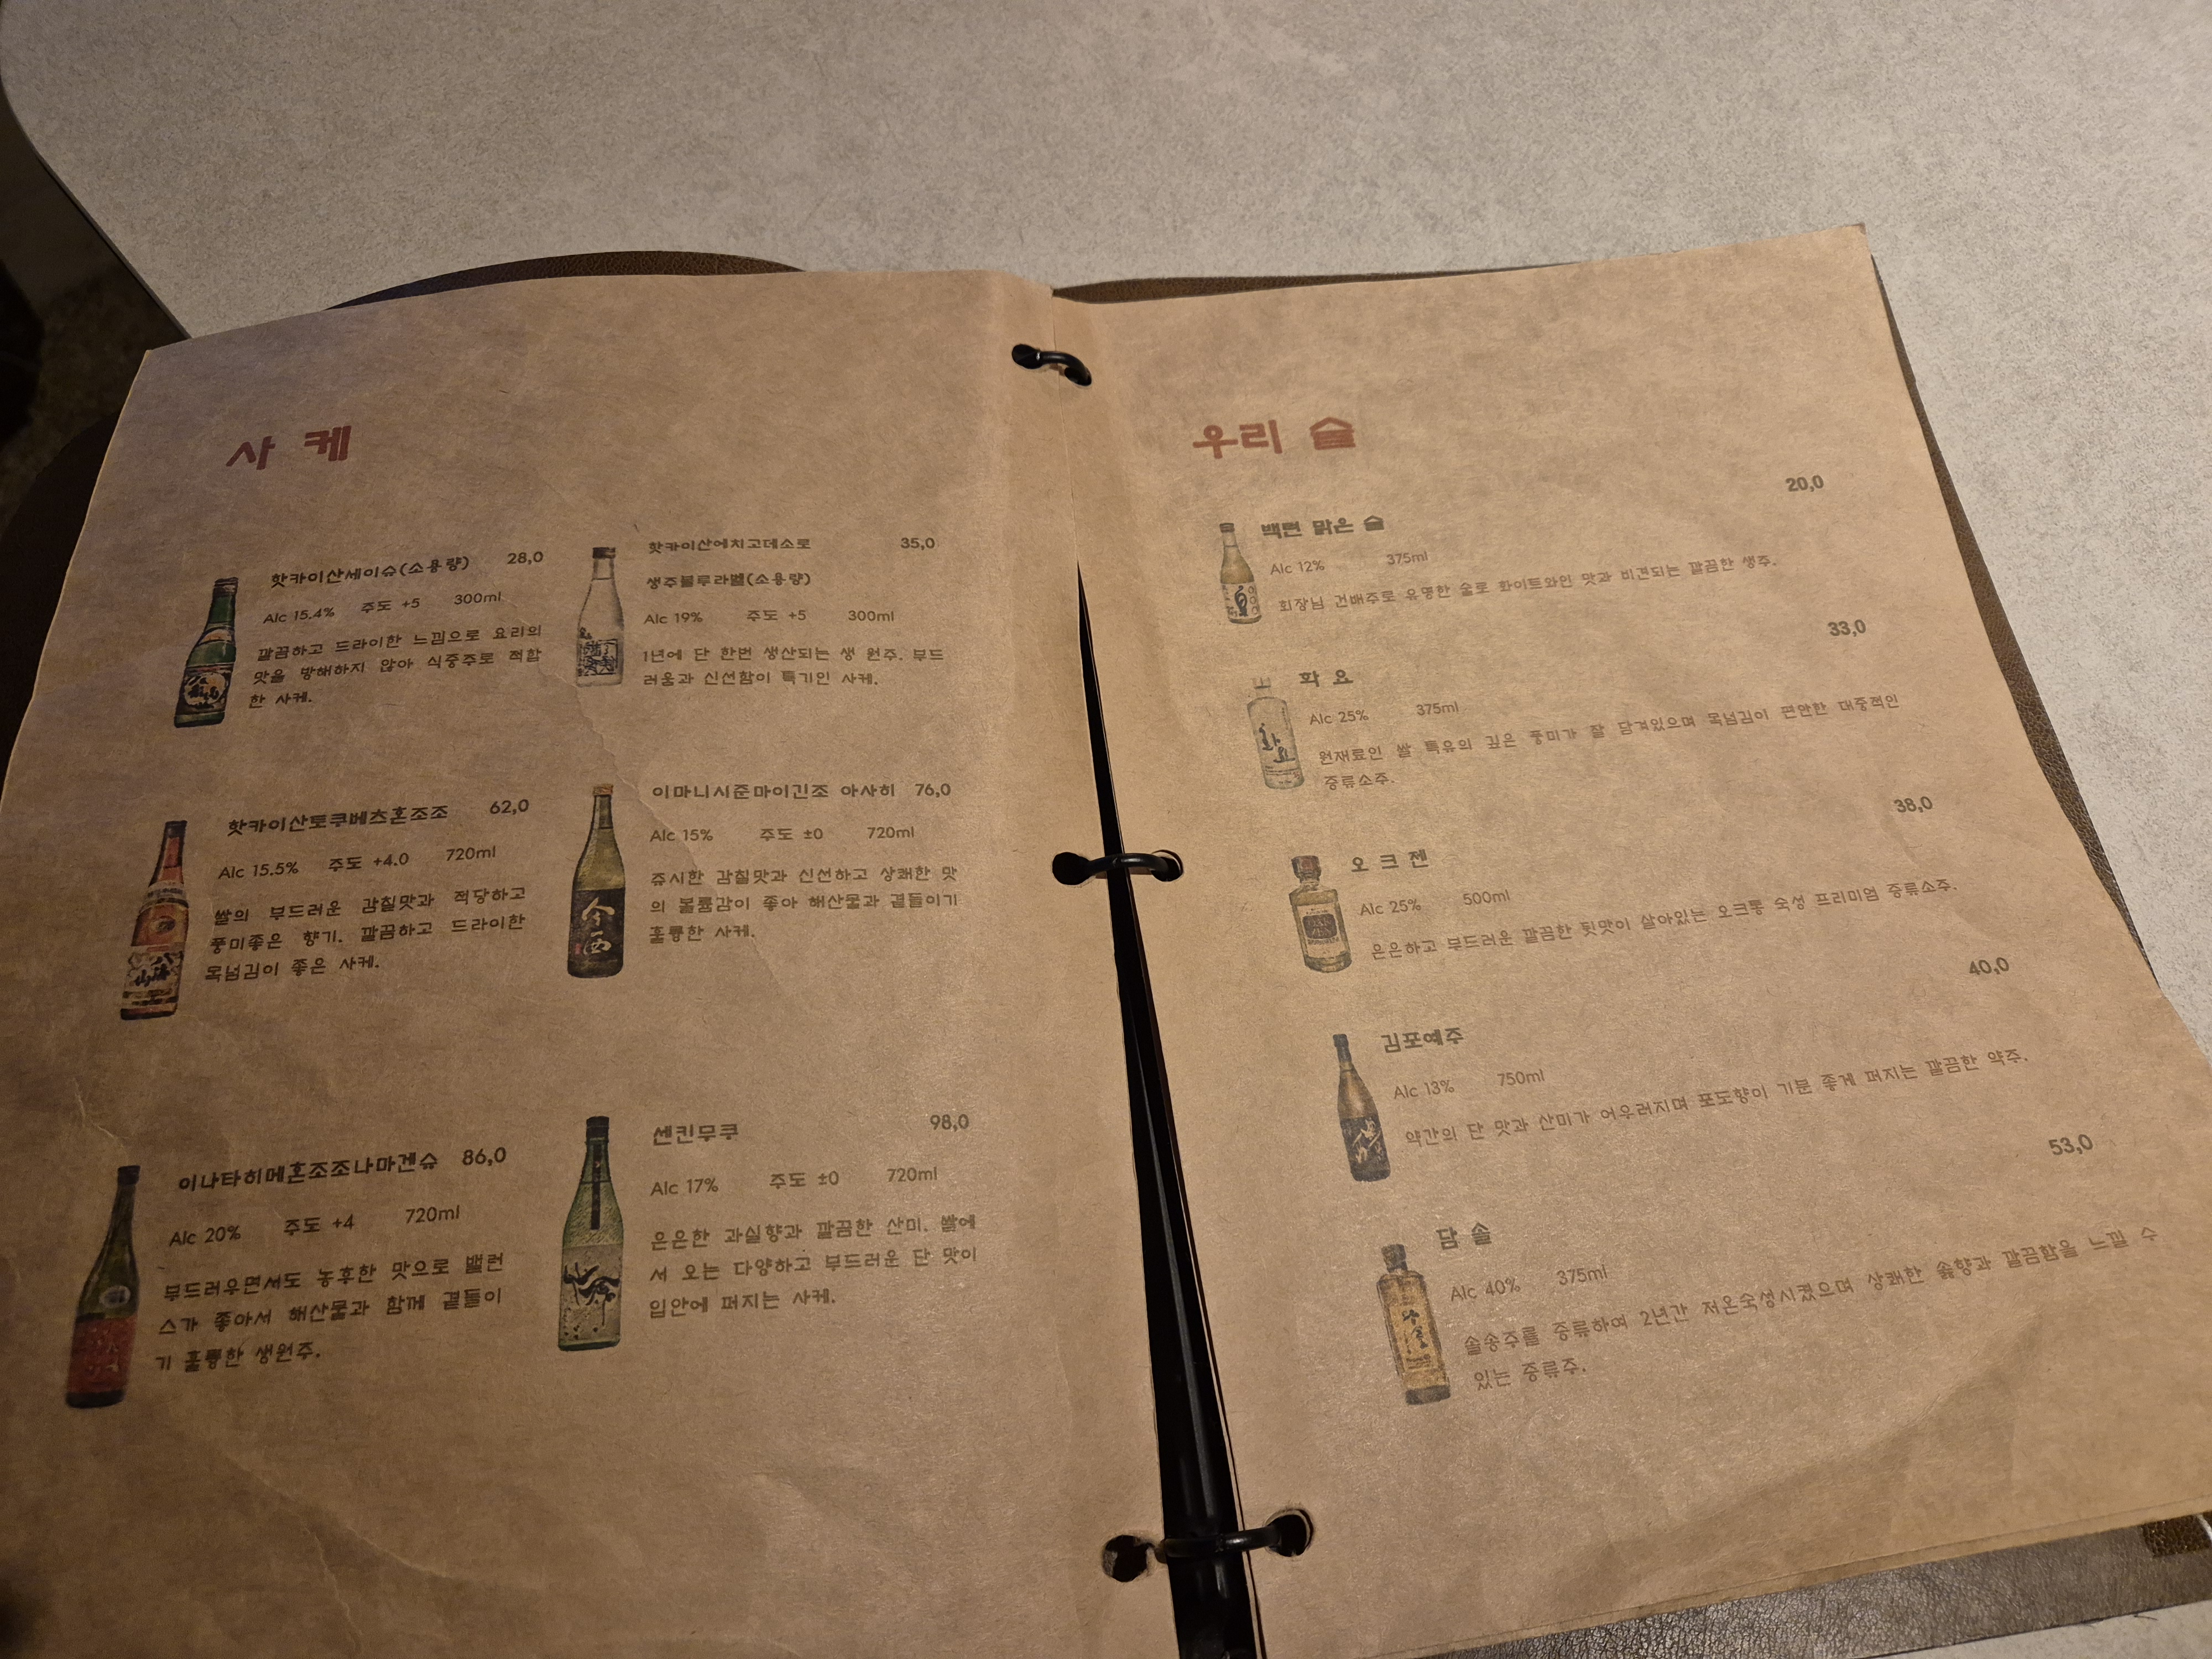 사 케
핫카이산세이슈(소용량) 28,0
Alc 15.4% 주도 +5 300ml
깔끔하고 드라이한 느낌으로 요리의
맛을 방해하지 않아 식중주로 적합
한 사케.
핫카이산에치고데소로 35,0
생주블루라벨(소용량)
Alc 19% 주도 +5 300ml
1년에 단 한번 생산되는 생 원주. 부드
러움과 신선함이 특기인 사케.
핫카이산토쿠베츠혼조조 62,0
Alc 15.5% 주도 +4.0 720ml
쌀의 부드러운 감칠맛과 적당하고
풍미좋은 향기. 깔끔하고 드라이한
목넘김이 좋은 사케.
이마니시준마이긴조 아사히 76,0
Alc 15% 주도 ±0 720ml
쥬시한 감칠맛과 신선하고 상쾌한 맛
의 볼륨감이 좋아 해산물과 곁들이기
훌륭한 사케.
今西
이나타히메혼조조나마겐슈 86,0
Alc 20% 주도 +4 720ml
부드러우면서도 농후한 맛으로 밸런
스가 좋아서 해산물과 함께 곁들이
기 훌륭한 생원주.
센킨무쿠 98,0
Alc 17% 주도 ±0 720ml
은은한 과실향과 깔끔한 산미. 쌀에
서 오는 다양하고 부드러운 단 맛이
입안에 퍼지는 사케.
우리 술
20,0
백련 맑은 술
Alc 12% 375ml
회장님 건배주로 유명한 술로 화이트와인 맛과 비견되는 깔끔한 생주.
33,0
화 요
Alc 25% 375ml
원재료인 쌀 특유의 깊은 풍미가 잘 담겨있으며 목넘김이 편안한 대중적인
증류소주.
화요
38,0
오 크 젠
Alc 25% 500ml
은은하고 부드러운 깔끔한 뒷맛이 살아있는 오크통 숙성 프리미엄 증류소주.
40,0
김포예주
Alc 13% 750ml
약간의 단 맛과 산미가 어우러지며 포도향이 기분 좋게 퍼지는 깔끔한 약주.
53,0
담 솔
Alc 40% 375ml
솔송주를 증류하여 2년간 저온숙성시켰으며 상쾌한 솔향과 깔끔함을 느낄 수
있는 증류주.